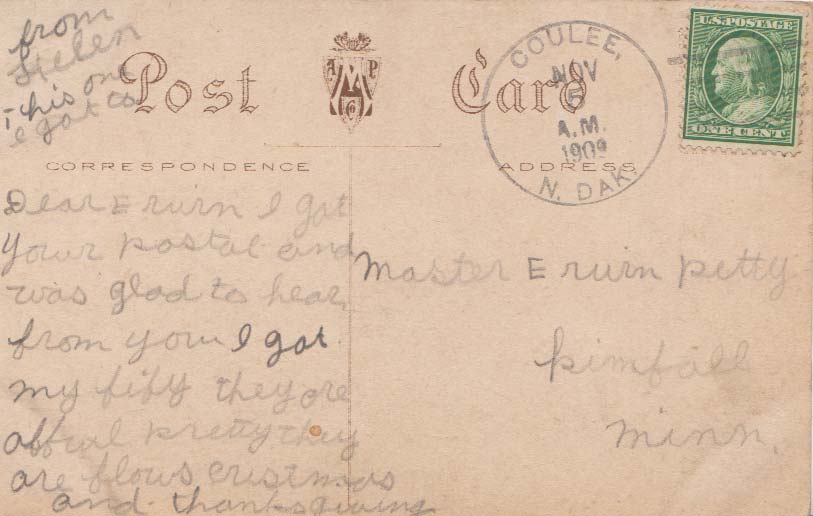 from
Helen
This one
I got to
Post Card
A M P
C
COULEE,
NOV
5
A.M.
1909
N. DAK.
U.S. POSTAGE
ONE CENT
CORRESPONDENCE
ADDRESS
Dear Erwin I got
your postal and
was glad to hear
from you I got
my fify they are
afful pretty they
are flows cristmas
and thanksgiving
Master Erwin Petty
Kimball
Minn.